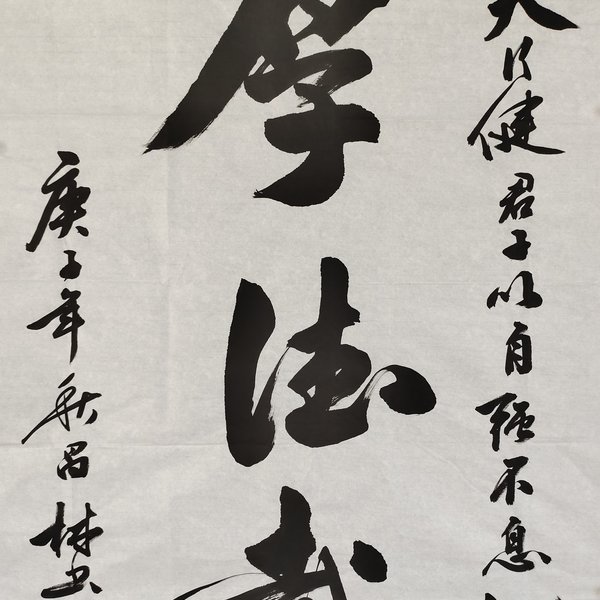 天行健君子以自强不息
厚德载
庚子年秋昌林书